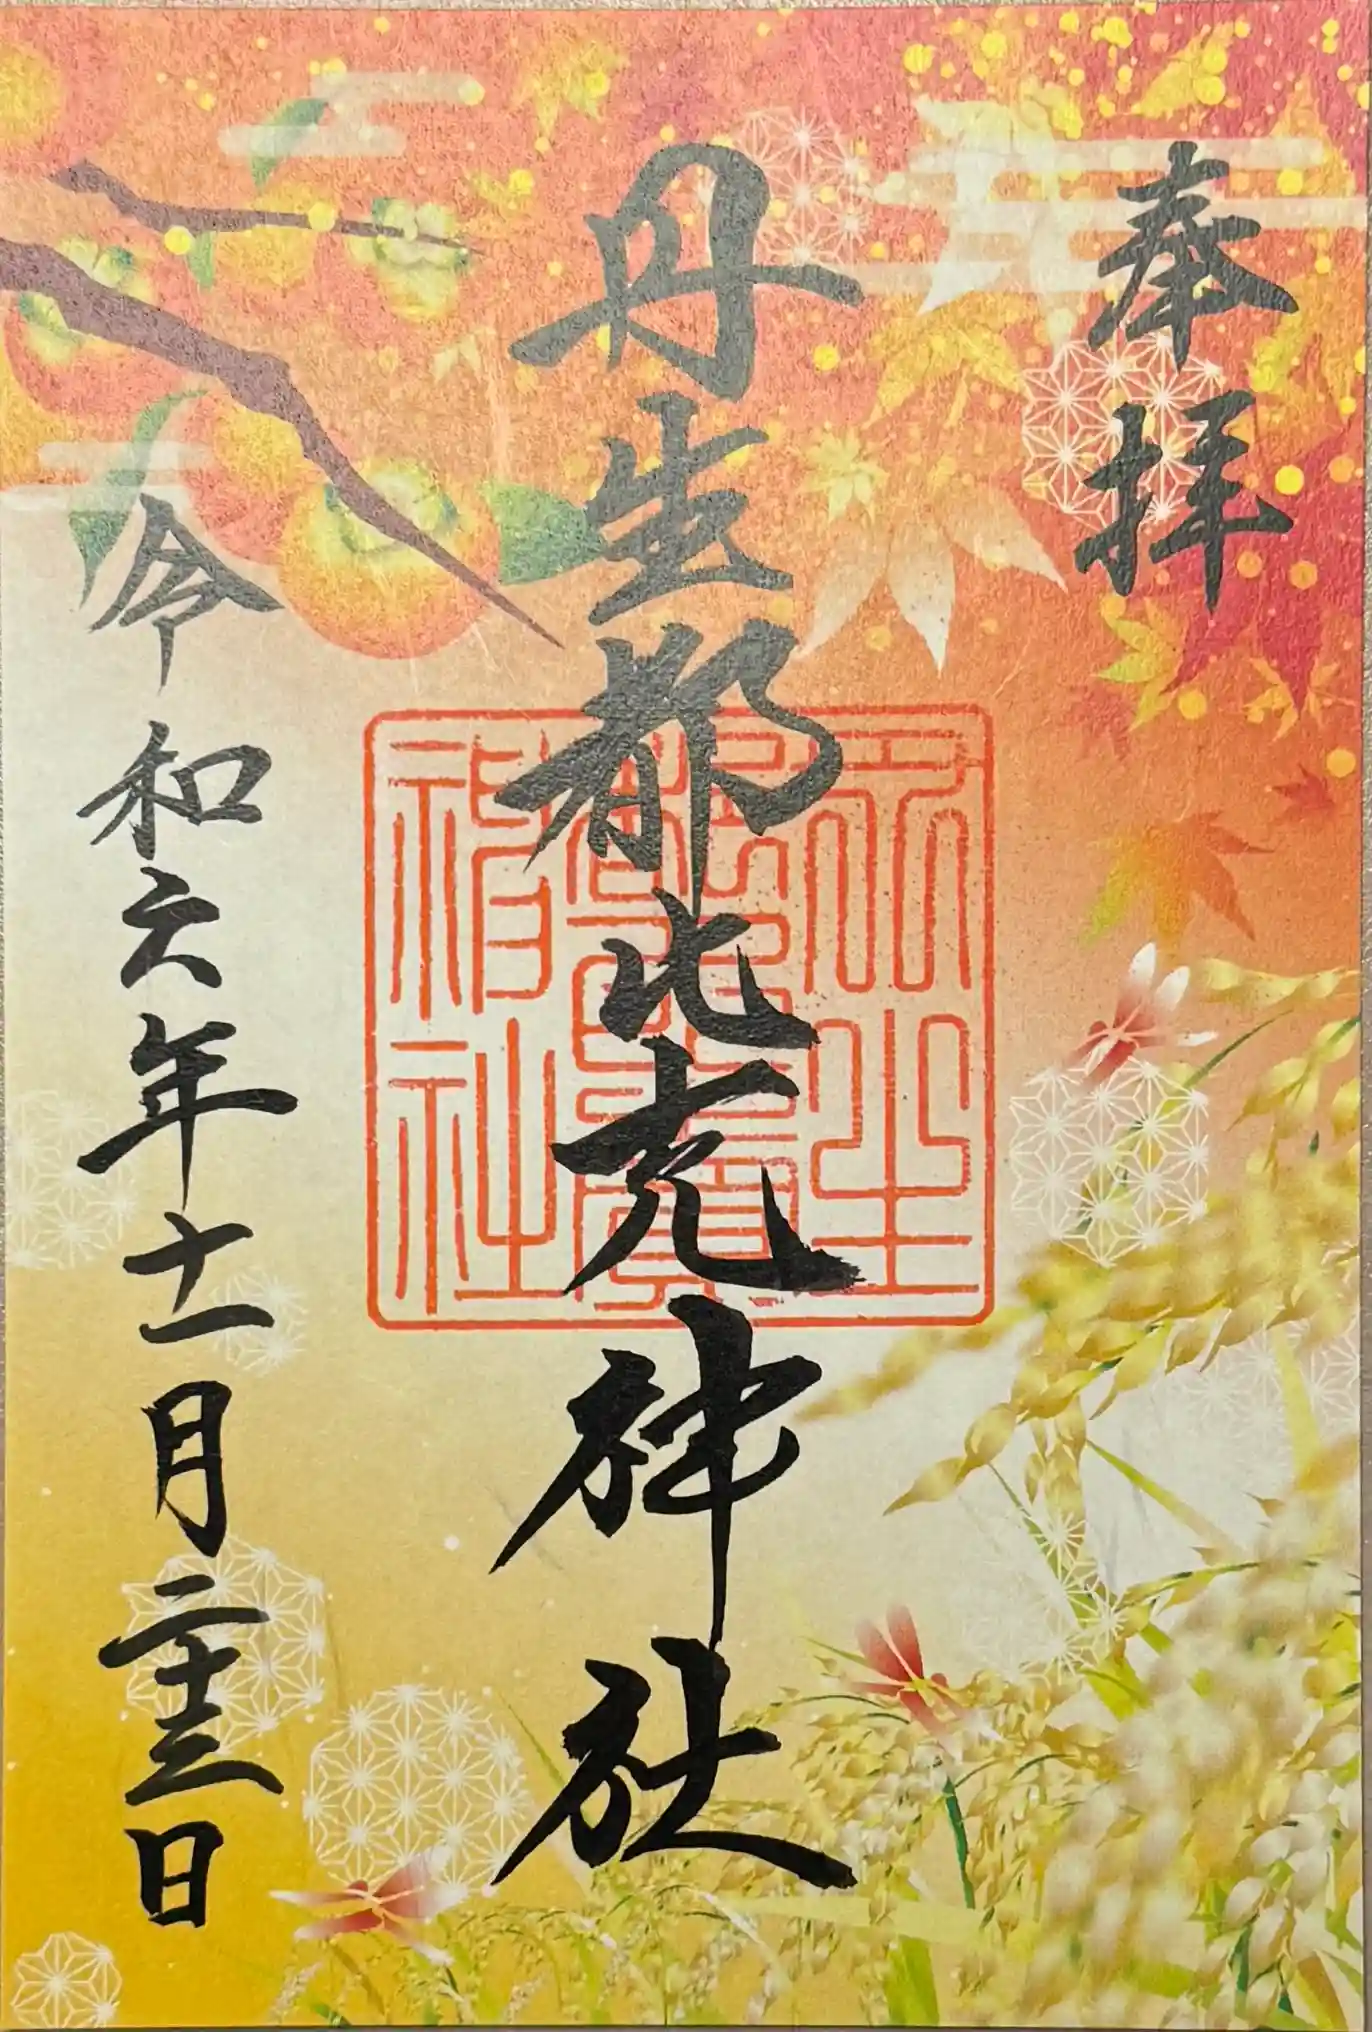 奉拝
丹生都比売神社
丹生都比賣神社
令和六年十一月二十三日